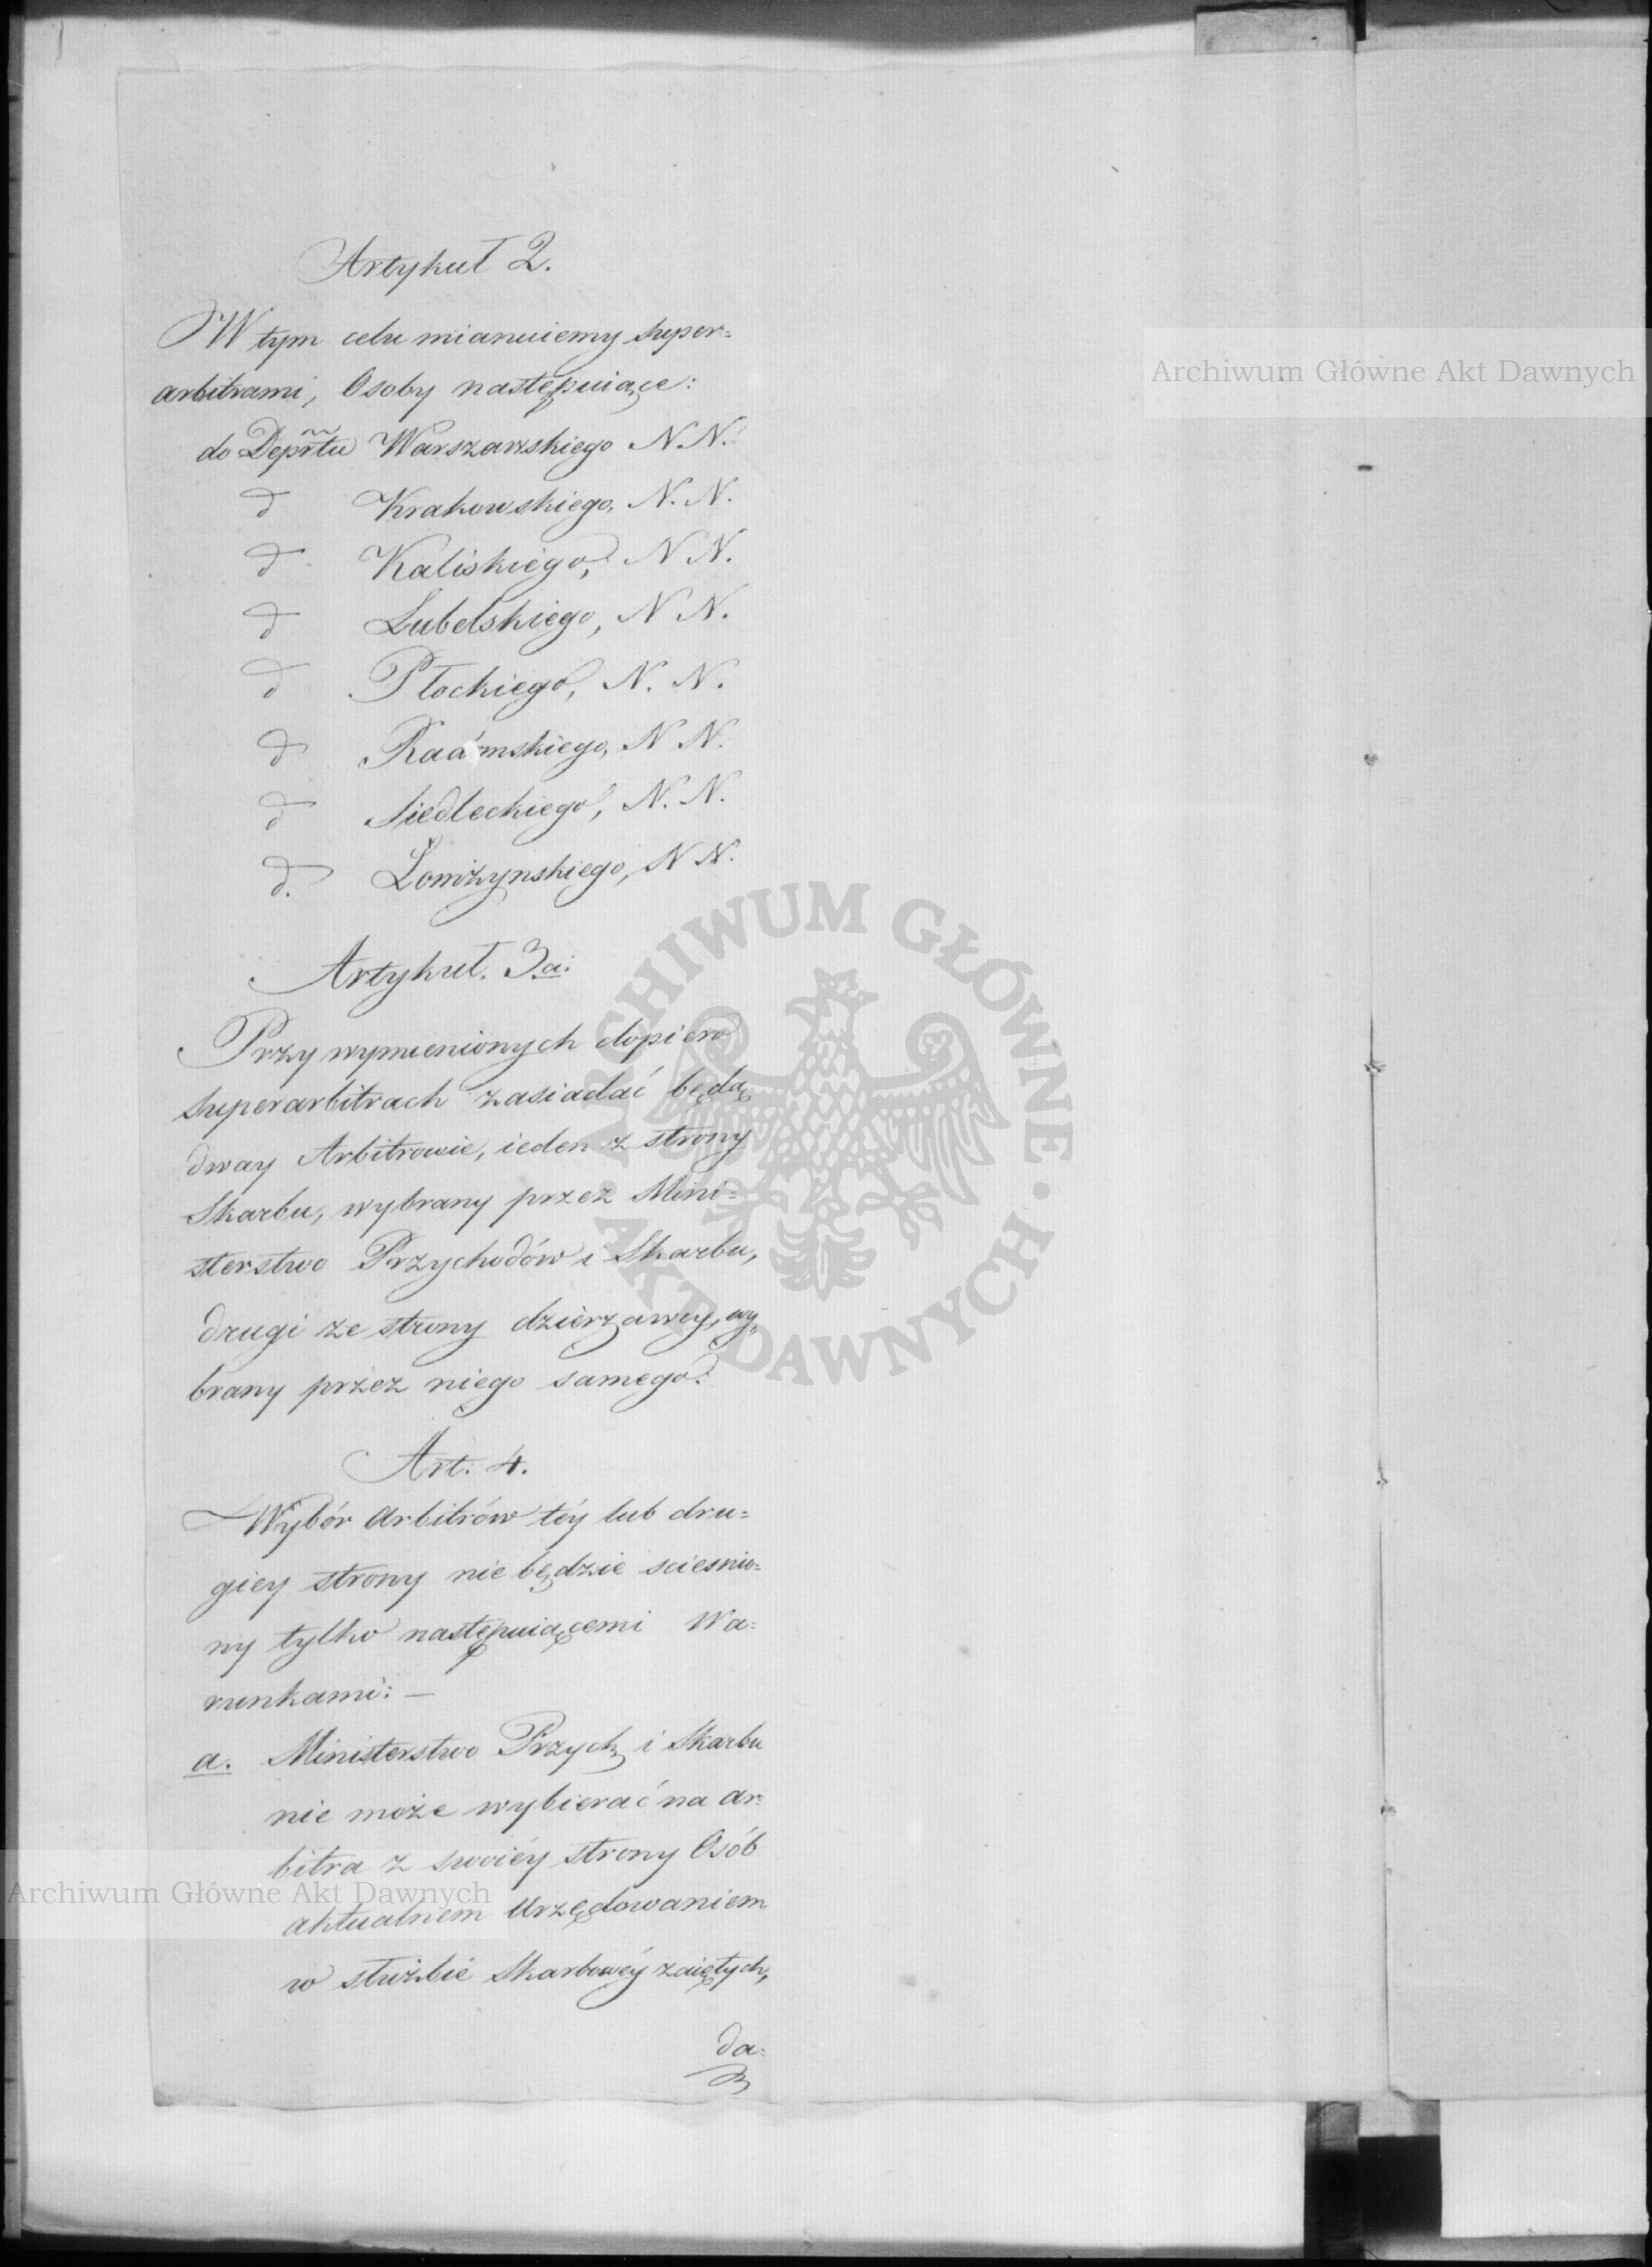 Artykuł 2.
W tym celu mianuiemy super=
arbitrami, Osoby następuiące:
do Deprtu Warszawskiego N.N.
d Krakowskiego, N. N.
d Kaliskiego, N N.
d Lubelskiego, N N.
d Płockiego, N. N.
d Radomskiego, N N.
d Siedleckiego, N. N.
d. Łomżynskiego, N N.
Artykuł. 3.a.
Przy wymienionych dopiero
superarbitrach zasiadać będą
dway Arbitrowie, ieden z strony
Skarbu, wybrany przez Mini=
sterstwo Przychodów i Skarbu,
drugi ze strony dzierżawcy, wy„
brany przez niego samego.
Art. 4.
Wybór Arbitrów téy lub dru=
giey strony nie będzie sciesnio=
ny tylko następuiącemi Wa=
runkami: —
a. Ministerstwo Przych i Skarbu
nie może wybierać na ar=
bitra z swoiéy strony Osób
aktualnem Urzędowaniem
w służbie Skarbowéy zaiętych,
da=
Archiwum Główne Akt Dawnych
ARCHIWUM GŁÓWNE · AKT DAWNYCH ·
Archiwum Główne Akt Dawnych